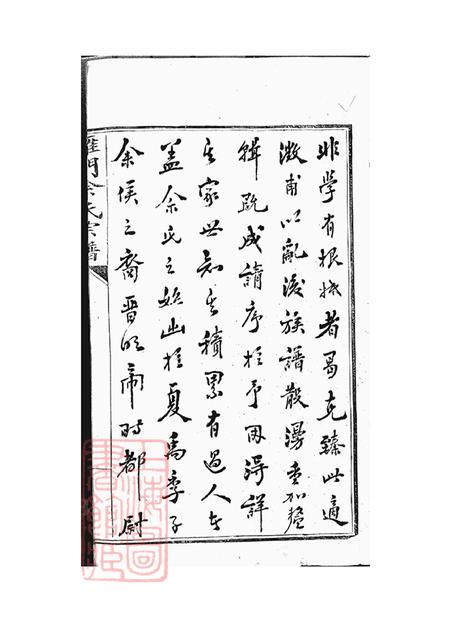 非学有根柢者曷克臻此適
漵甫以亂後族譜散漫重加釐
輯既成請序於予因得詳
其家世知其積累有過人者
蓋余氏之始出於夏禹季子
余侯之裔晋明帝時都尉
雁門余氏宗譜